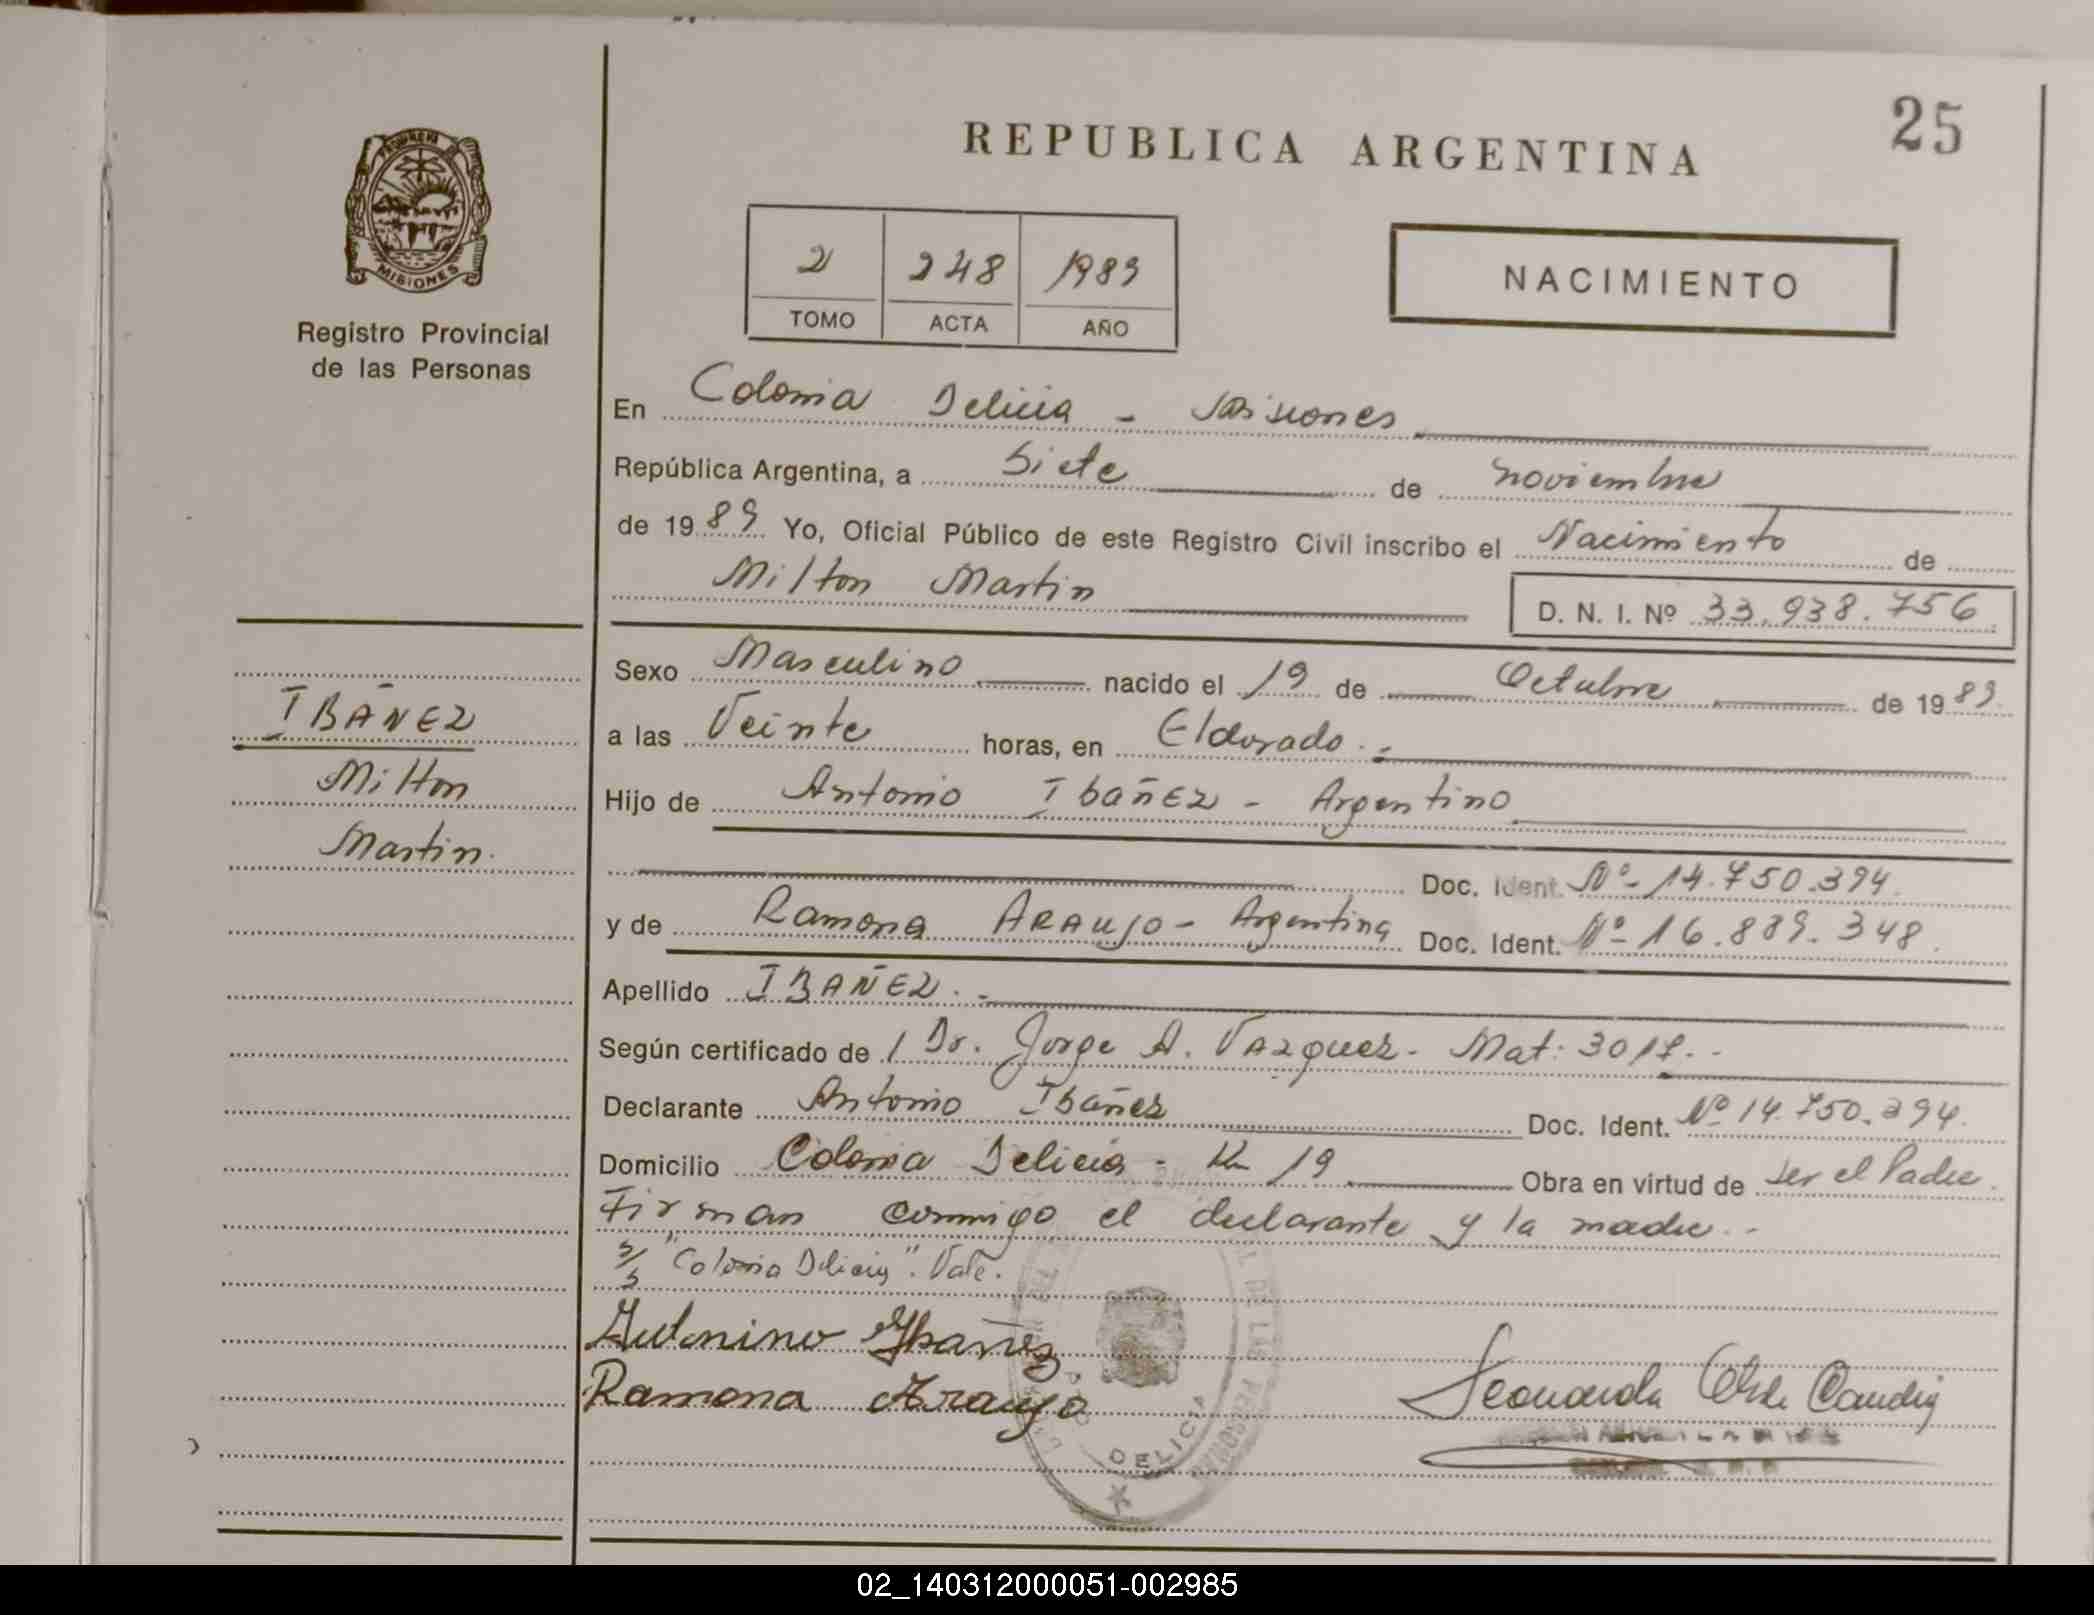 25
REPUBLICA ARGENTINA
PROVINCIA D
MISIONES
Registro Provincial
de las Personas
2 248 1989
TOMO ACTA AÑO
NACIMIENTO
En Colonia Delicia - Misiones
República Argentina, a Siete de noviembre
de 1989 Yo, Oficial Público de este Registro Civil inscribo el Nacimiento de
Milton Martin
D. N. I. Nº 33.938.756
Sexo Masculino nacido el 19 de Octubre de 1989
IBAÑEZ
Milton
Martin.
a las Veinte horas, en Eldorado.-
Hijo de Antonio Ibañez - Argentino
Doc. Ident. Nº 14.750.394.
y de Ramona ARAUJO - Argentina Doc. Ident. Nº 16.889.348.
Apellido IBAÑEZ.-
Según certificado de / Dr. Jorge A. Vazquez - Mat: 3017.-
Declarante Antonio Ibañez Doc. Ident. Nº 14.750.394.
Domicilio Colonia Delicia - Km 19 Obra en virtud de ser el Padre.
Firman conmigo el declarante y la madre.-
S/S "Colonia Delicia". Vale.
Antonino Ybañez
Ramona Araujo
DE LAS PERSONAS
DELICIA
02_140312000051-002985